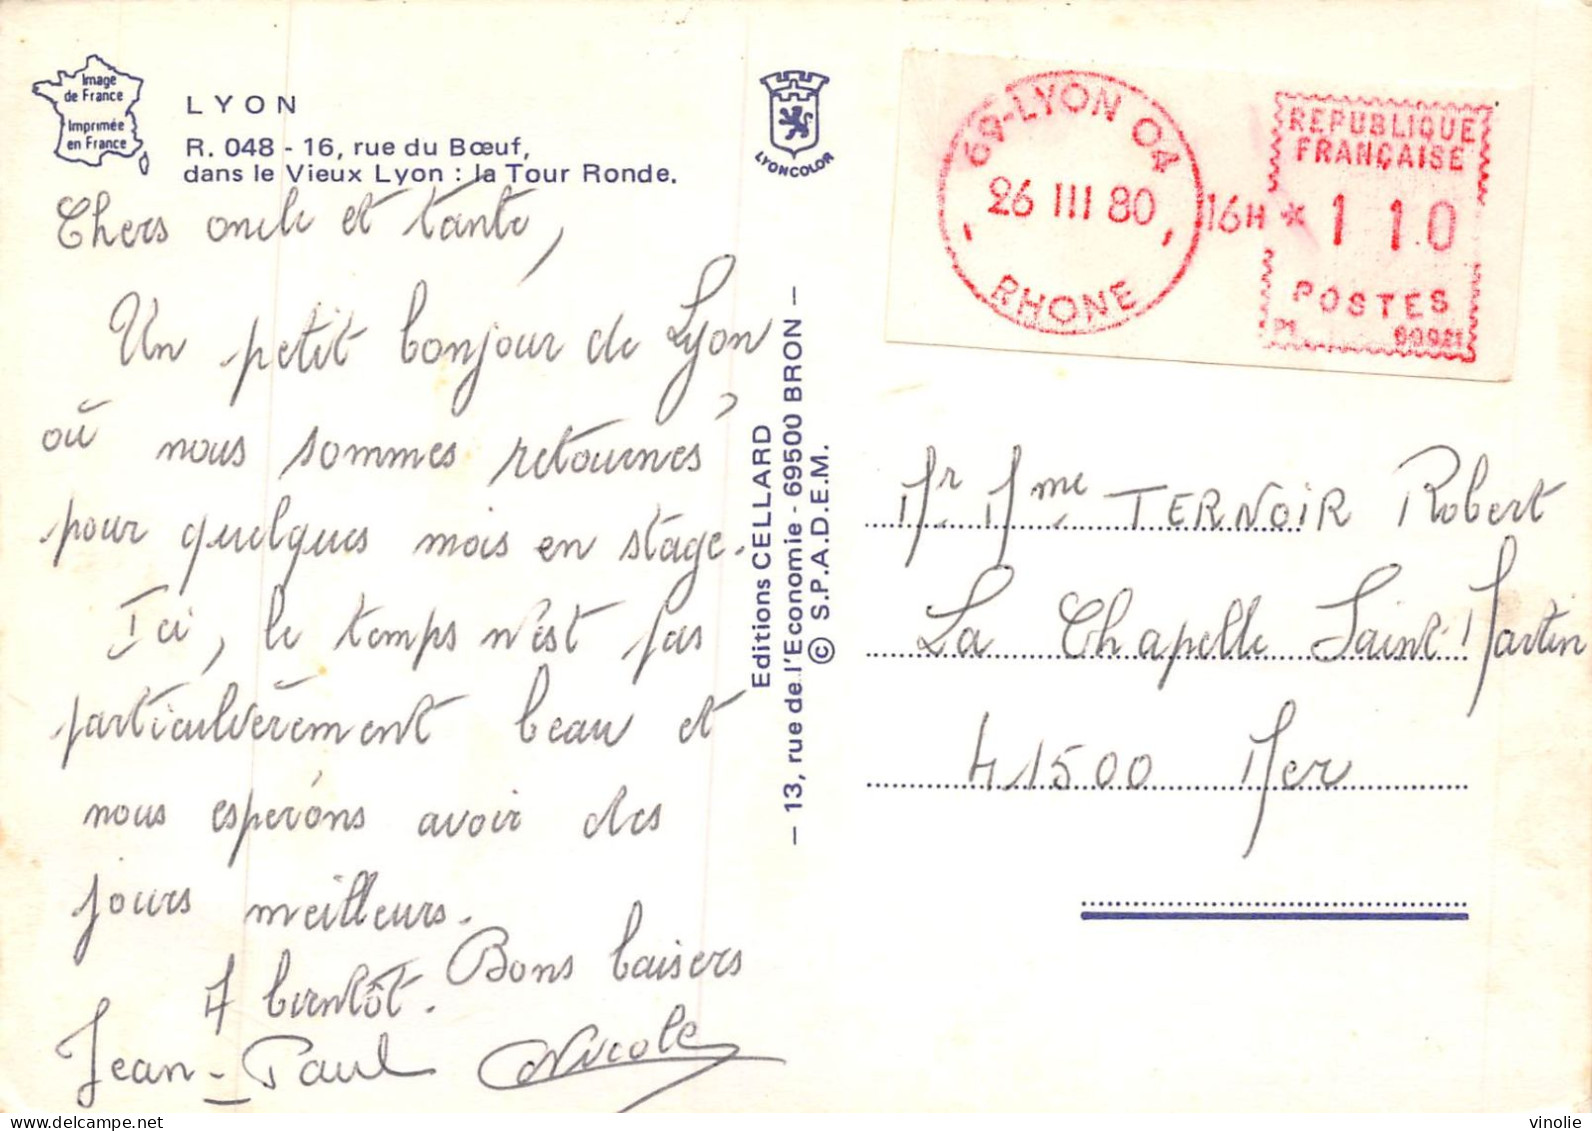 Image
de France
Imprimée
en France
LYON
R. 048 - 16, rue du Bœuf,
dans le Vieux Lyon : la Tour Ronde.
LYONCOLOR
Chers oncle et tante,
Un petit bonjour de Lyon,
où nous sommes retournés
pour quelques mois en stage.
Ici, le temps n'est pas
particulièrement beau et
nous espérons avoir des
jours meilleurs.
A bientôt. Bons baisers
Jean-Paul Nicole
Editions CELLARD
— 13, rue de l'Economie - 69500 BRON —
© S.P.A.D.E.M.
69-LYON 04
26 III 80
RHONE
16H
REPUBLIQUE
FRANÇAISE
* 1 10
POSTES
Mr Mme TERNOIR Robert
La Chapelle Saint-Martin
41500 Mer
delcampe.net
vinolie